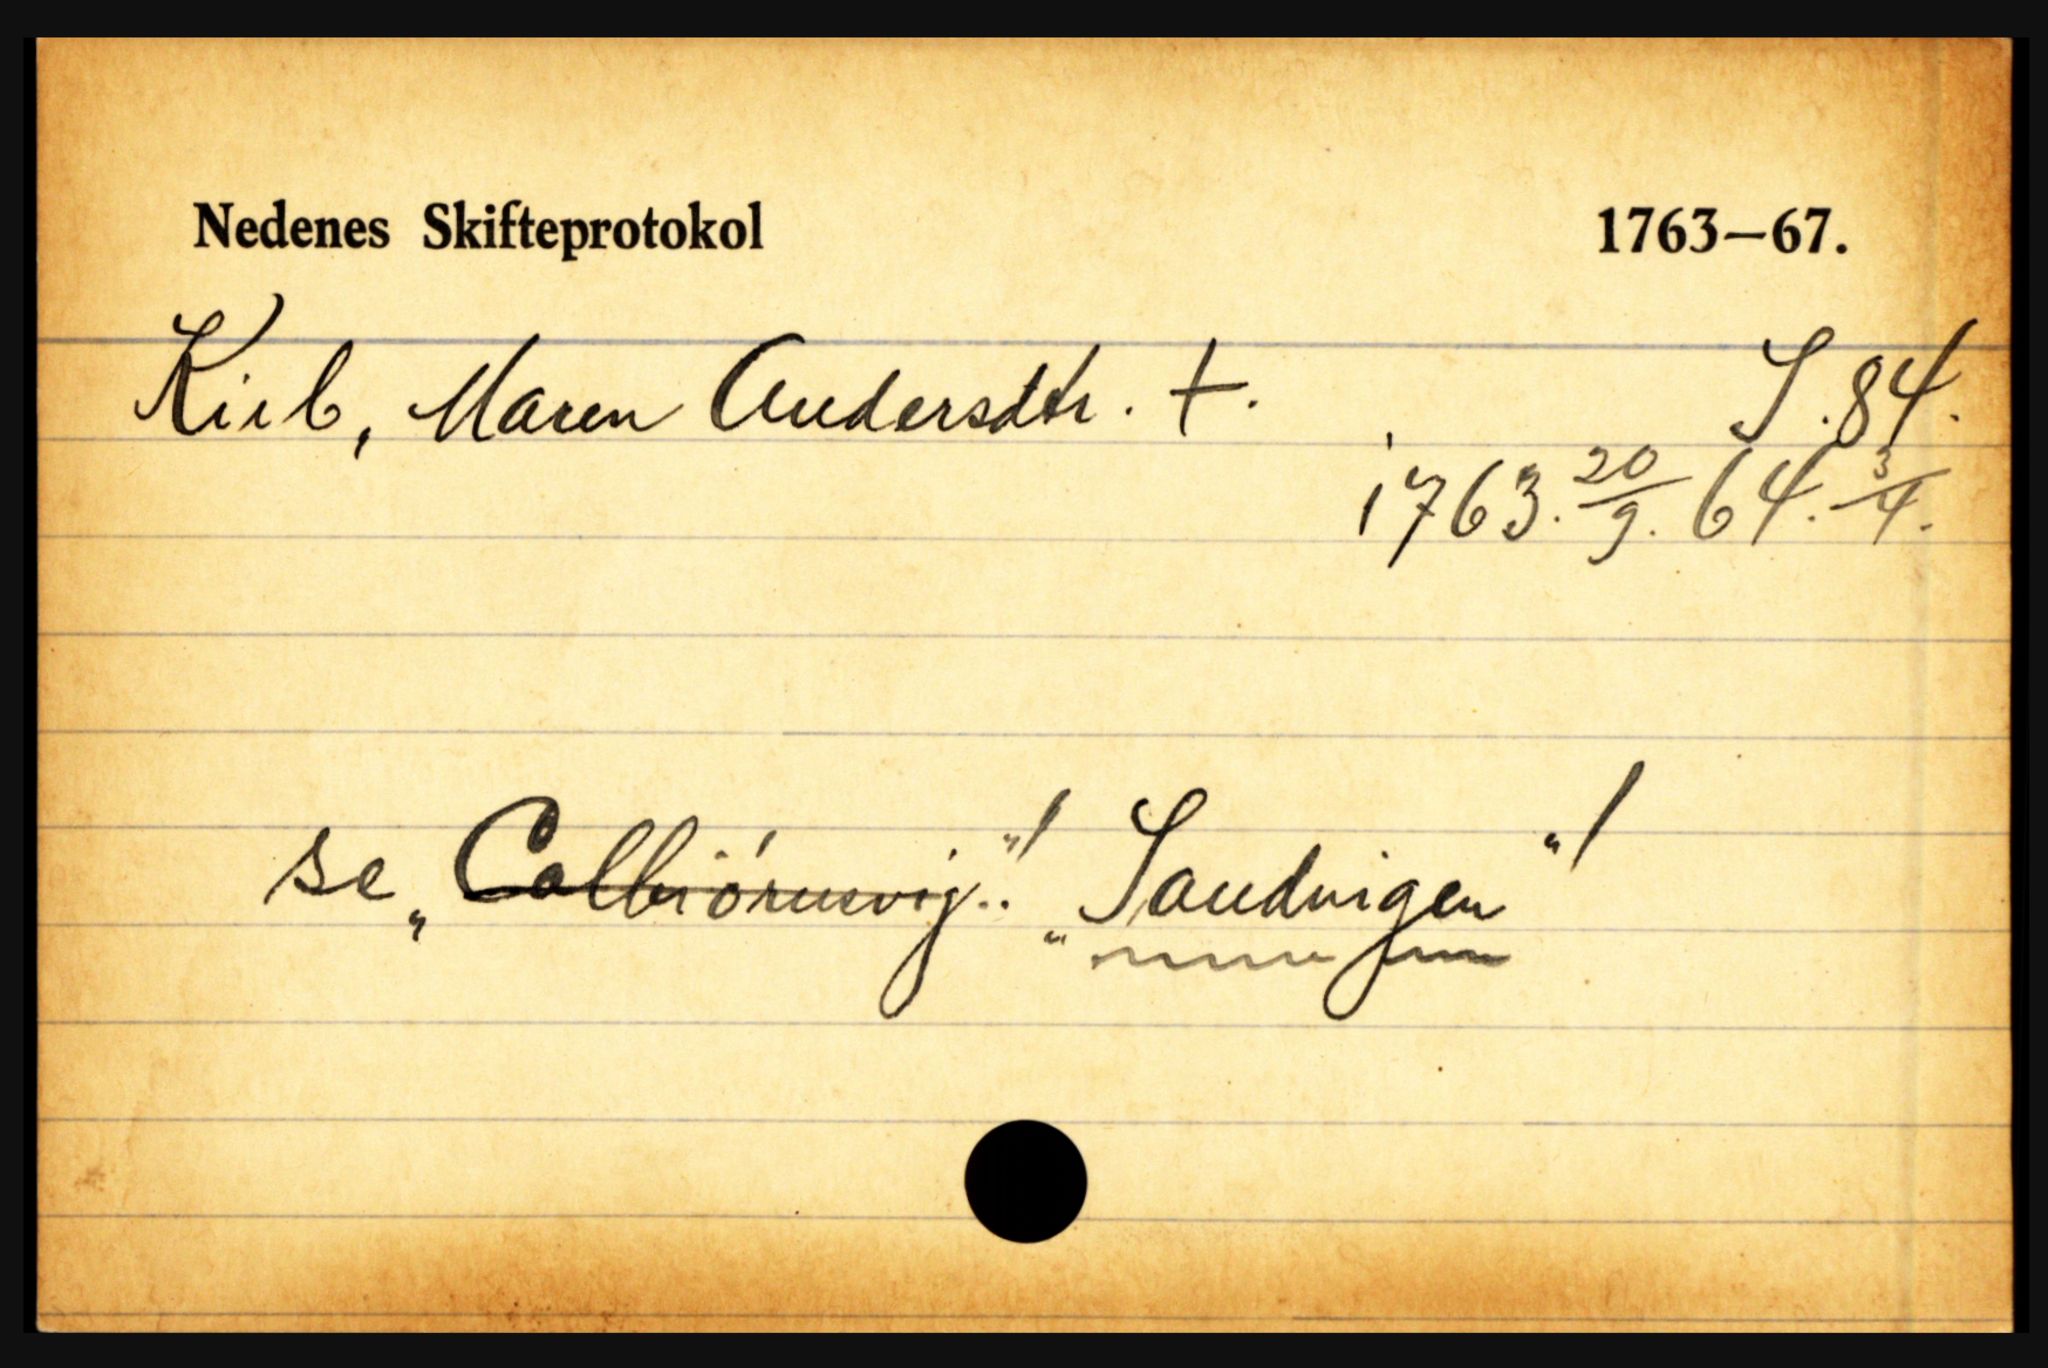 Nedenes Skifteprotokol 1763—67.
Kirb, Maren Andersdtr. †. S. 84.
1763. 20/9. 64. 3/4.
se „Colbiörnsvig"! „Sandvigen"!